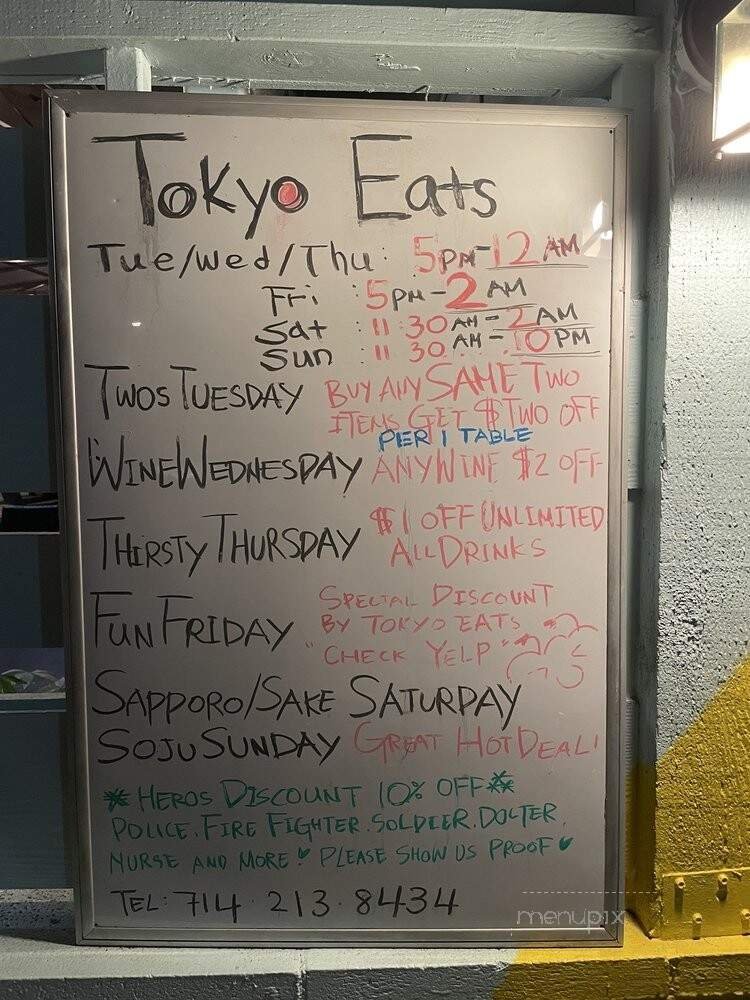 Tokyo Eats
Tue/Wed/Thu: 5PM-12AM
Fri : 5PM-2AM
Sat : 11 30AM-2AM
Sun : 11 30AM-10PM
TWOS TUESDAY BUY ANY SAME TWO
ITEMS GET $TWO OFF
PER 1 TABLE
WINE WEDNESDAY ANY WINE $2 OFF
THIRSTY THURSDAY $1 OFF UNLIMITED
ALL DRINKS
FUN FRIDAY SPECIAL DISCOUNT
BY TOKYO EATS
"CHECK YELP"
SAPPORO/SAKE SATURDAY
SOJU SUNDAY GREAT HOT DEAL!
*HEROS DISCOUNT 10% OFF*
POLICE. FIRE FIGHTER. SOLDEER. DOCTER.
NURSE AND MORE! PLEASE SHOW US PROOF
TEL: 714.213.8434
menupix